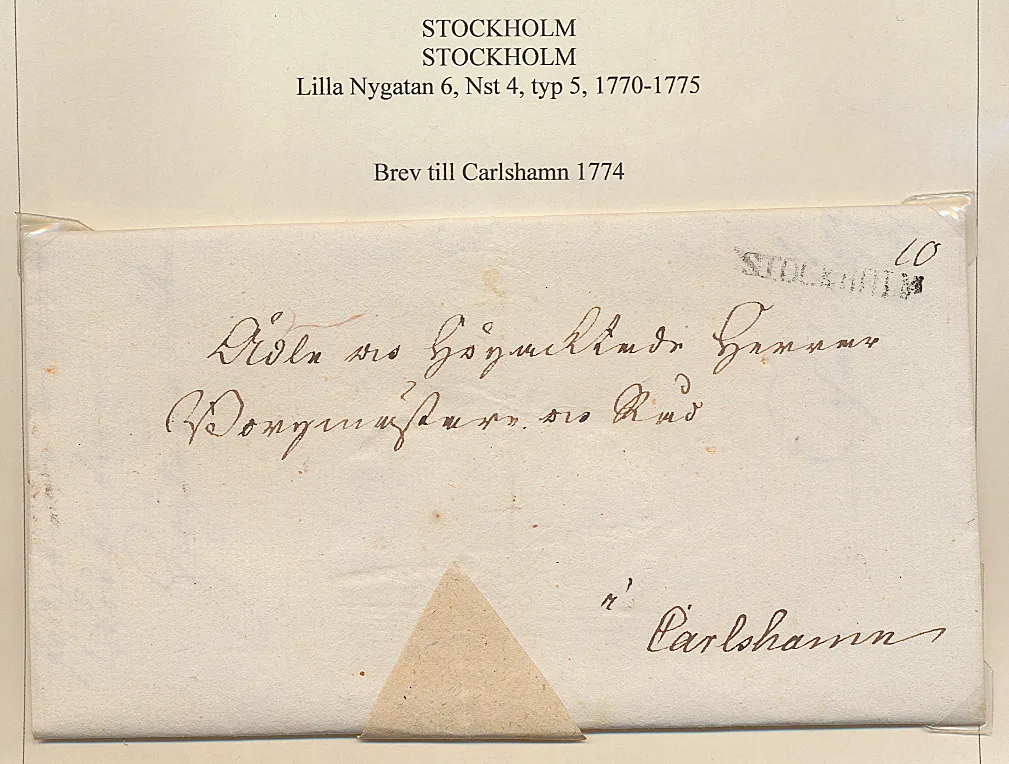 STOCKHOLM
STOCKHOLM
Lilla Nygatan 6, Nst 4, typ 5, 1770-1775
Brev till Carlshamn 1774
10
STOCKHOLM
Ädle och Högacktade Herrar
Borgmästare och Råd
à
Carlshamn